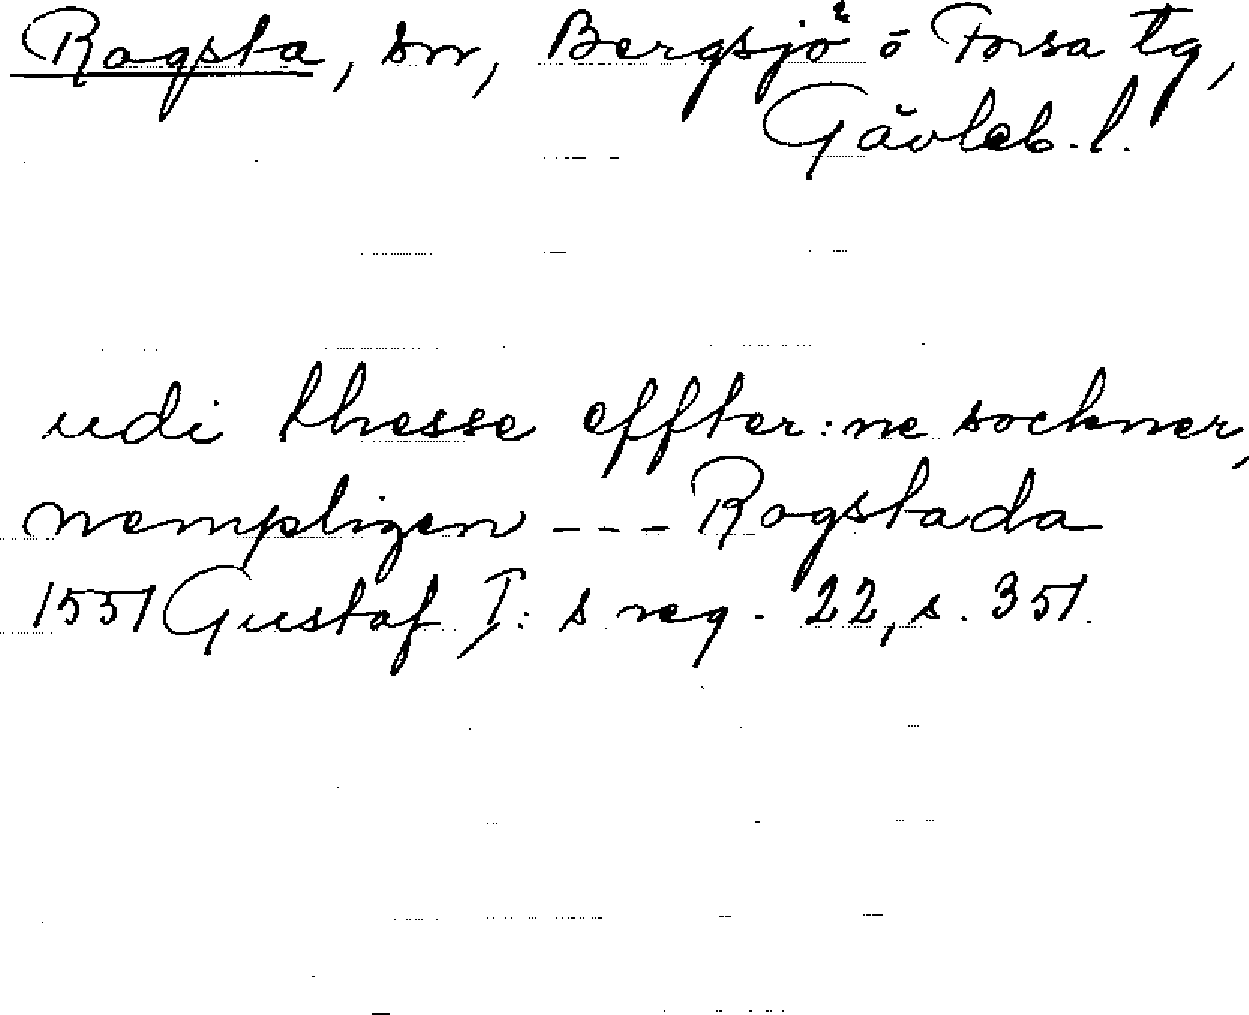 Rogsta, sn, Bergsjö o Forsa tg,
Gävleb. l.
udi thesse effter:ne sockner,
nempligen --- Rogstada
1551 Gustaf I:s reg. 22, s. 351.